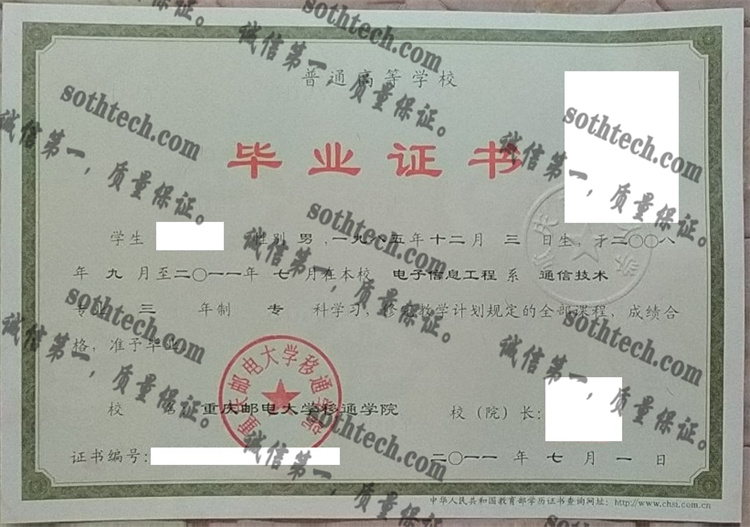 普通高等学校
毕业证书
学生 性别 男，一九八五年十二月 三 日生，于二〇〇八
年 九 月至二〇一一年 七 月在本校 电子信息工程 系 通信技术
专业 三 年制 专 科学习，修完教学计划规定的全部课程，成绩合
格，准予毕业。
重庆邮电大学移通学院
校 名：重庆邮电大学移通学院 校（院）长：
证书编号： 二〇一一 年 七 月 一 日
中华人民共和国教育部学历证书查询网址：http://www.chsi.com.cn
sothtech.com
诚信第一，质量保证。
sothtech.com
诚信第一，质量保证。
sothtech.com
诚信第一，质量保证。
sothtech.com
诚信第一，质量保证。
sothtech.com
诚信第一，质量保证。
sothtech.com
诚信第一，质量保证。
sothtech.com
诚信第一，质量保证。
sothtech.com
诚信第一，质量保证。